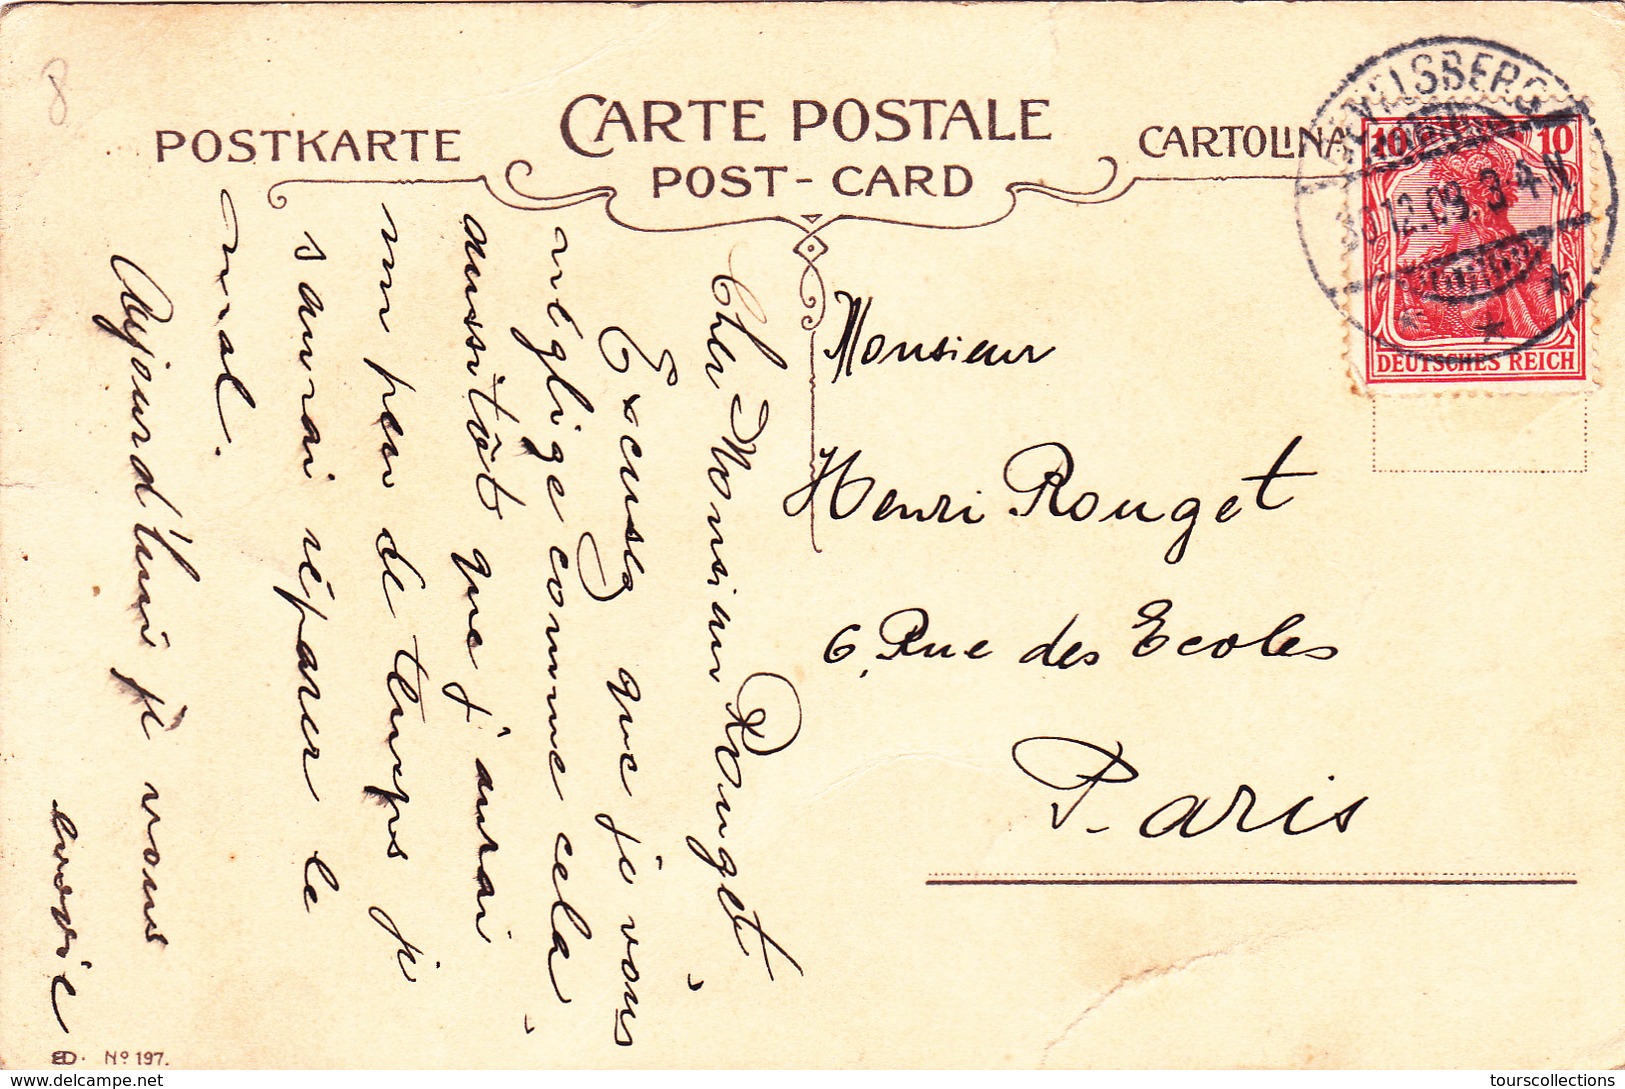 8
CARTE POSTALE
POSTKARTE
POST-CARD
CARTOLINA
EVELSBERG
30.12.09. 3-4 N
10 10
DEUTSCHES REICH
Monsieur
Henri Rouget
6, Rue des Ecoles
Paris
Cher Monsieur Rouget,
Excusez que je vous
néglige comme cela,
aussitôt que j'aurai
un peu de temps je
saurai réparer le
mal.
Aujourd'hui je vous
envoie
ED. No 197.
tourscollections